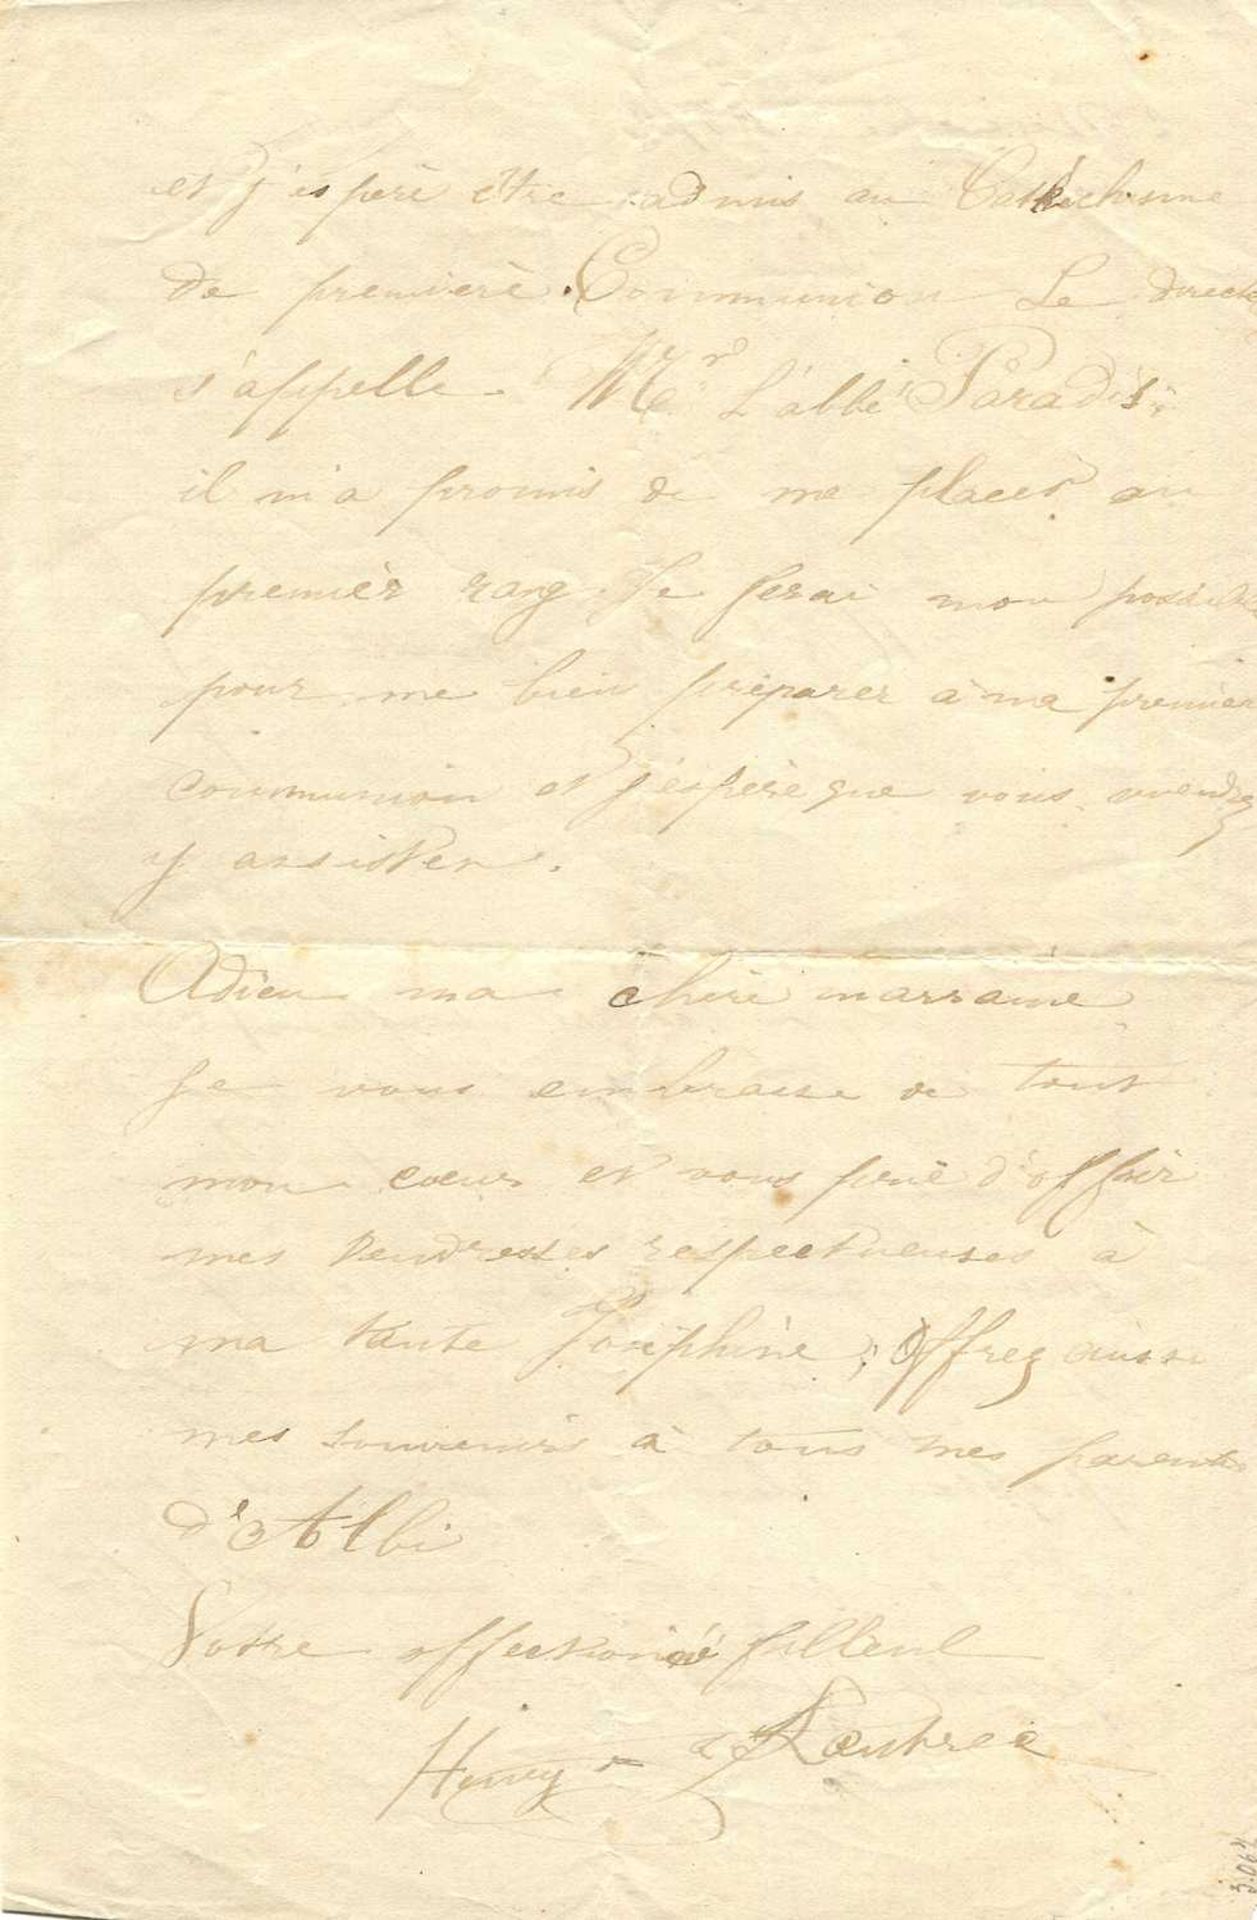 et j'espère être admis au Cathéchisme
de première Communion Le direct
s'appelle Mr L'abbé Paradis
il m'a promis de me placer au
premièr rang Je ferai mon possible
pour me bien préparer à ma premièr
communion et j'espère que vous viendrez
y assister.
Adieu ma chère marraine
Je vous embrasse de tout
mon cœur et vous prie d'offrir
mes tendresses respectueuses à
ma tante Joséphine, Offrez aussi
mes souvenirs à tous mes parents
d'Albi
Votre affectionné filleul
Henry
3.064